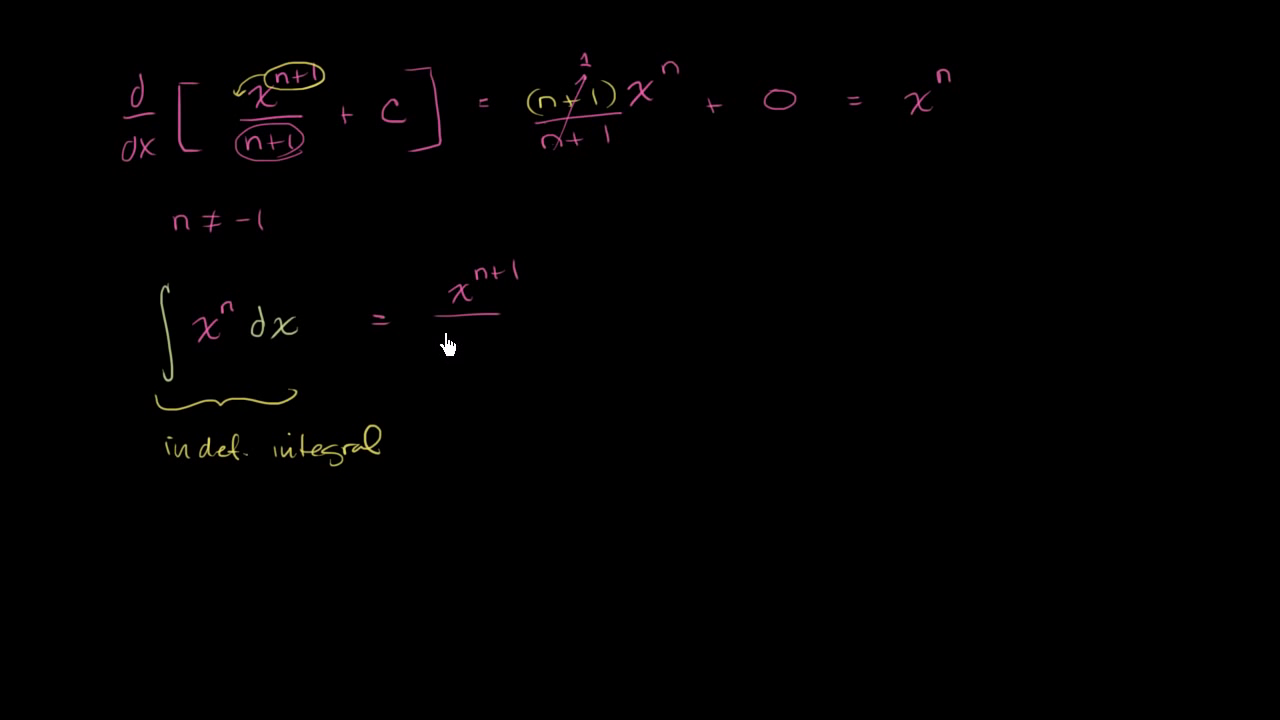 d/dx [ x^(n+1)/(n+1) + C ] = (n+1)x^n/(n+1) 1 + 0 = x^n
n ≠ -1
∫ x^n dx = x^(n+1)
indef. integral